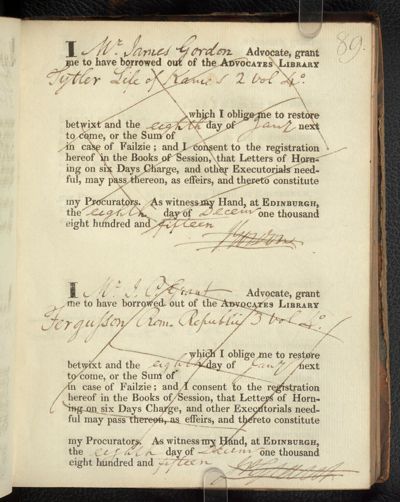 89.
I Mr. James Gordon Advocate, grant
me to have borrowed out of the ADVOCATES LIBRARY
Tytler Life of Kames 2 Vol 4o.
which I oblige me to restore
betwixt and the eighth day of Jany next
to come, or the Sum of
in case of Failzie; and I consent to the registration
hereof in the Books of Session, that Letters of Horn-
ing on six Days Charge, and other Executorials need-
ful, may pass thereon, as effeirs, and thereto constitute
my Procurators. As witness my Hand, at EDINBURGH,
the eighth day of Decem one thousand
eight hundred and fifteen
I Mr. J. P. Grant Advocate, grant
me to have borrowed out of the ADVOCATES LIBRARY
Fergusson Rom. Republic 3 Vol 4o.
which I oblige me to restore
betwixt and the eighth day of Jany next
to come, or the Sum of
in case of Failzie; and I consent to the registration
hereof in the Books of Session, that Letters of Horn-
ing on six Days Charge, and other Executorials need-
ful may pass thereon, as effeirs, and thereto constitute
my Procurators. As witness my Hand, at EDINBURGH,
the eighth day of Decem one thousand
eight hundred and fifteen